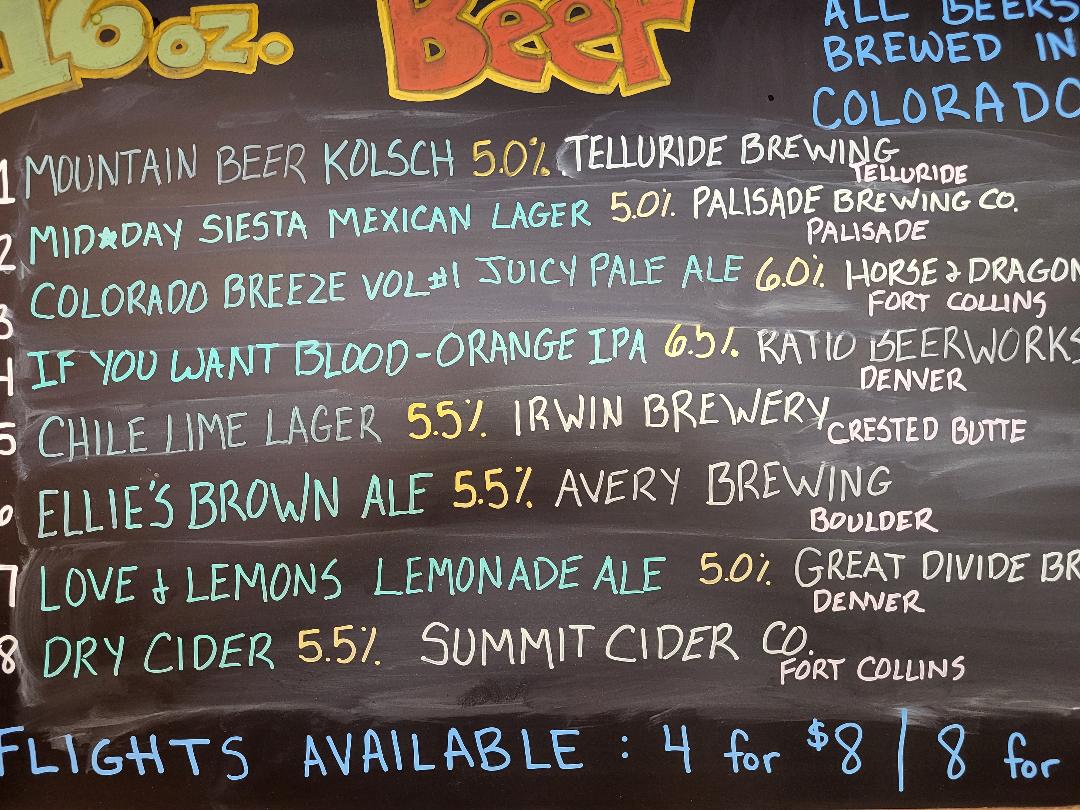 16 oz. Beer
ALL BEERS
BREWED IN
COLORADO
1 MOUNTAIN BEER KOLSCH 5.0% TELLURIDE BREWING
TELLURIDE
2 MID★DAY SIESTA MEXICAN LAGER 5.0% PALISADE BREWING CO.
PALISADE
3 COLORADO BREEZE VOL#1 JUICY PALE ALE 6.0% HORSE & DRAGON
FORT COLLINS
4 IF YOU WANT BLOOD-ORANGE IPA 6.5% RATIO BEERWORKS
DENVER
5 CHILE LIME LAGER 5.5% IRWIN BREWERY
CRESTED BUTTE
6 ELLIE'S BROWN ALE 5.5% AVERY BREWING
BOULDER
7 LOVE & LEMONS LEMONADE ALE 5.0% GREAT DIVIDE BR
DENVER
8 DRY CIDER 5.5% SUMMIT CIDER CO.
FORT COLLINS
FLIGHTS AVAILABLE : 4 for $8 | 8 for